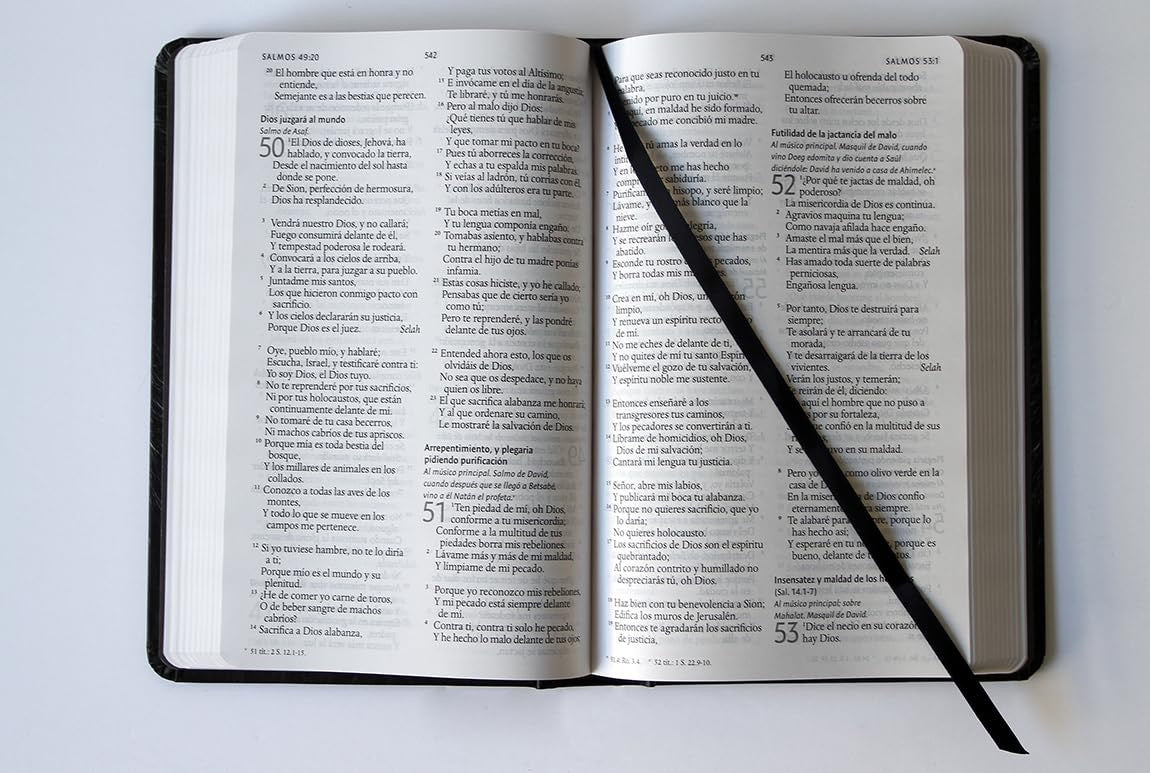 SALMOS 49:20
542
20 El hombre que está en honra y no
entiende,
Semejante es a las bestias que perecen.
Dios juzgará al mundo
Salmo de Asaf.
50 1El Dios de dioses, Jehová, ha
hablado, y convocado la tierra,
Desde el nacimiento del sol hasta
donde se pone.
2 De Sion, perfección de hermosura,
Dios ha resplandecido.
3 Vendrá nuestro Dios, y no callará;
Fuego consumirá delante de él,
Y tempestad poderosa le rodeará.
4 Convocará a los cielos de arriba,
Y a la tierra, para juzgar a su pueblo.
5 Juntadme mis santos,
Los que hicieron conmigo pacto con
sacrificio.
6 Y los cielos declararán su justicia,
Porque Dios es el juez. Selah
7 Oye, pueblo mío, y hablaré;
Escucha, Israel, y testificaré contra ti:
Yo soy Dios, el Dios tuyo.
8 No te reprenderé por tus sacrificios,
Ni por tus holocaustos, que están
continuamente delante de mí.
9 No tomaré de tu casa becerros,
Ni machos cabríos de tus apriscos.
10 Porque mía es toda bestia del
bosque,
Y los millares de animales en los
collados.
11 Conozco a todas las aves de los
montes,
Y todo lo que se mueve en los
campos me pertenece.
12 Si yo tuviese hambre, no te lo diría
a ti;
Porque mío es el mundo y su
plenitud.
13 ¿He de comer yo carne de toros,
O de beber sangre de machos
cabríos?
14 Sacrifica a Dios alabanza,
Y paga tus votos al Altísimo;
15 E invócame en el día de la angustia;
Te libraré, y tú me honrarás.
16 Pero al malo dijo Dios:
¿Qué tienes tú que hablar de mis
leyes,
Y que tomar mi pacto en tu boca?
17 Pues tú aborreces la corrección,
Y echas a tu espalda mis palabras.
18 Si veías al ladrón, tú corrías con él,
Y con los adúlteros era tu parte.
19 Tu boca metías en mal,
Y tu lengua componía engaño.
20 Tomabas asiento, y hablabas contra
tu hermano;
Contra el hijo de tu madre ponías
infamia.
21 Estas cosas hiciste, y yo he callado;
Pensabas que de cierto sería yo
como tú;
Pero te reprenderé, y las pondré
delante de tus ojos.
22 Entended ahora esto, los que os
olvidáis de Dios,
No sea que os despedace, y no haya
quien os libre.
23 El que sacrifica alabanza me honrará;
Y al que ordenare su camino,
Le mostraré la salvación de Dios.
Arrepentimiento, y plegaria
pidiendo purificación
Al músico principal. Salmo de David,
cuando después que se llegó a Betsabé,
vino a él Natán el profeta.*
51 1Ten piedad de mí, oh Dios,
conforme a tu misericordia;
Conforme a la multitud de tus
piedades borra mis rebeliones.
2 Lávame más y más de mi maldad,
Y límpiame de mi pecado.
3 Porque yo reconozco mis rebeliones,
Y mi pecado está siempre delante
de mí.
4 Contra ti, contra ti solo he pecado,
Y he hecho lo malo delante de tus ojos;
* 51 tít.: 2 S. 12.1-15.
543
SALMOS 53:1
Para que seas reconocido justo en tu
por puro en tu juicio.*
en maldad he sido formado,
me concibió mi madre.
6 He tú amas la verdad en lo
Y en me has hecho
sabiduría.
7 hisopo, y seré limpio;
Lávame, y más blanco que la
nieve.
8 Hazme oír
Y se recrearán que has
abatido.
9 Esconde tu rostro pecados,
Y borra todas mis
10 Crea en mí, oh Dios, un
limpio,
Y renueva un espíritu recto
de mí.
11 No me eches de delante de ti,
Y no quites de mí tu santo
12 Vuélveme el gozo de tu salvación,
Y espíritu noble me sustente.
13 Entonces enseñaré a los
transgresores tus caminos,
Y los pecadores se convertirán a ti.
14 Líbrame de homicidios, oh Dios,
Dios de mi salvación;
Cantará mi lengua tu justicia.
15 Señor, abre mis labios,
Y publicará mi boca tu alabanza.
16 Porque no quieres sacrificio, que yo
lo daría;
No quieres holocausto.
17 Los sacrificios de Dios son el espíritu
quebrantado;
Al corazón contrito y humillado no
despreciarás tú, oh Dios.
18 Haz bien con tu benevolencia a Sion;
Edifica los muros de Jerusalén.
19 Entonces te agradarán los sacrificios
de justicia,
El holocausto u ofrenda del todo
quemada;
Entonces ofrecerán becerros sobre
tu altar.
Futilidad de la jactancia del malo
Al músico principal. Masquil de David, cuando
vino Doeg edomita y dio cuenta a Saúl
diciéndole: David ha venido a casa de Ahimelec.*
52 1¿Por qué te jactas de maldad, oh
poderoso?
La misericordia de Dios es continua.
2 Agravios maquina tu lengua;
Como navaja afilada hace engaño.
3 Amaste el mal más que el bien,
La mentira más que la verdad. Selah
4 Has amado toda suerte de palabras
perniciosas,
Engañosa lengua.
5 Por tanto, Dios te destruirá para
siempre;
Te asolará y te arrancará de tu
morada,
Y te desarraigará de la tierra de los
vivientes. Selah
Verán los justos, y temerán;
reirán de él, diciendo:
aquí el hombre que no puso a
por su fortaleza,
confió en la multitud de sus
Y se en su maldad.
8 Pero yo como olivo verde en la
casa de
En la Dios confío
eternamente siempre.
9 Te alabaré para porque lo
has hecho así;
Y esperaré en tu porque es
bueno, delante de
Insensatez y maldad de los
(Sal. 14.1-7)
Al músico principal; sobre
Mahalat. Masquil de David.
53 1Dice el necio en su corazón:
hay Dios.
* 51.4: Ro. 3.4. * 52 tít.: 1 S. 22.9-10.